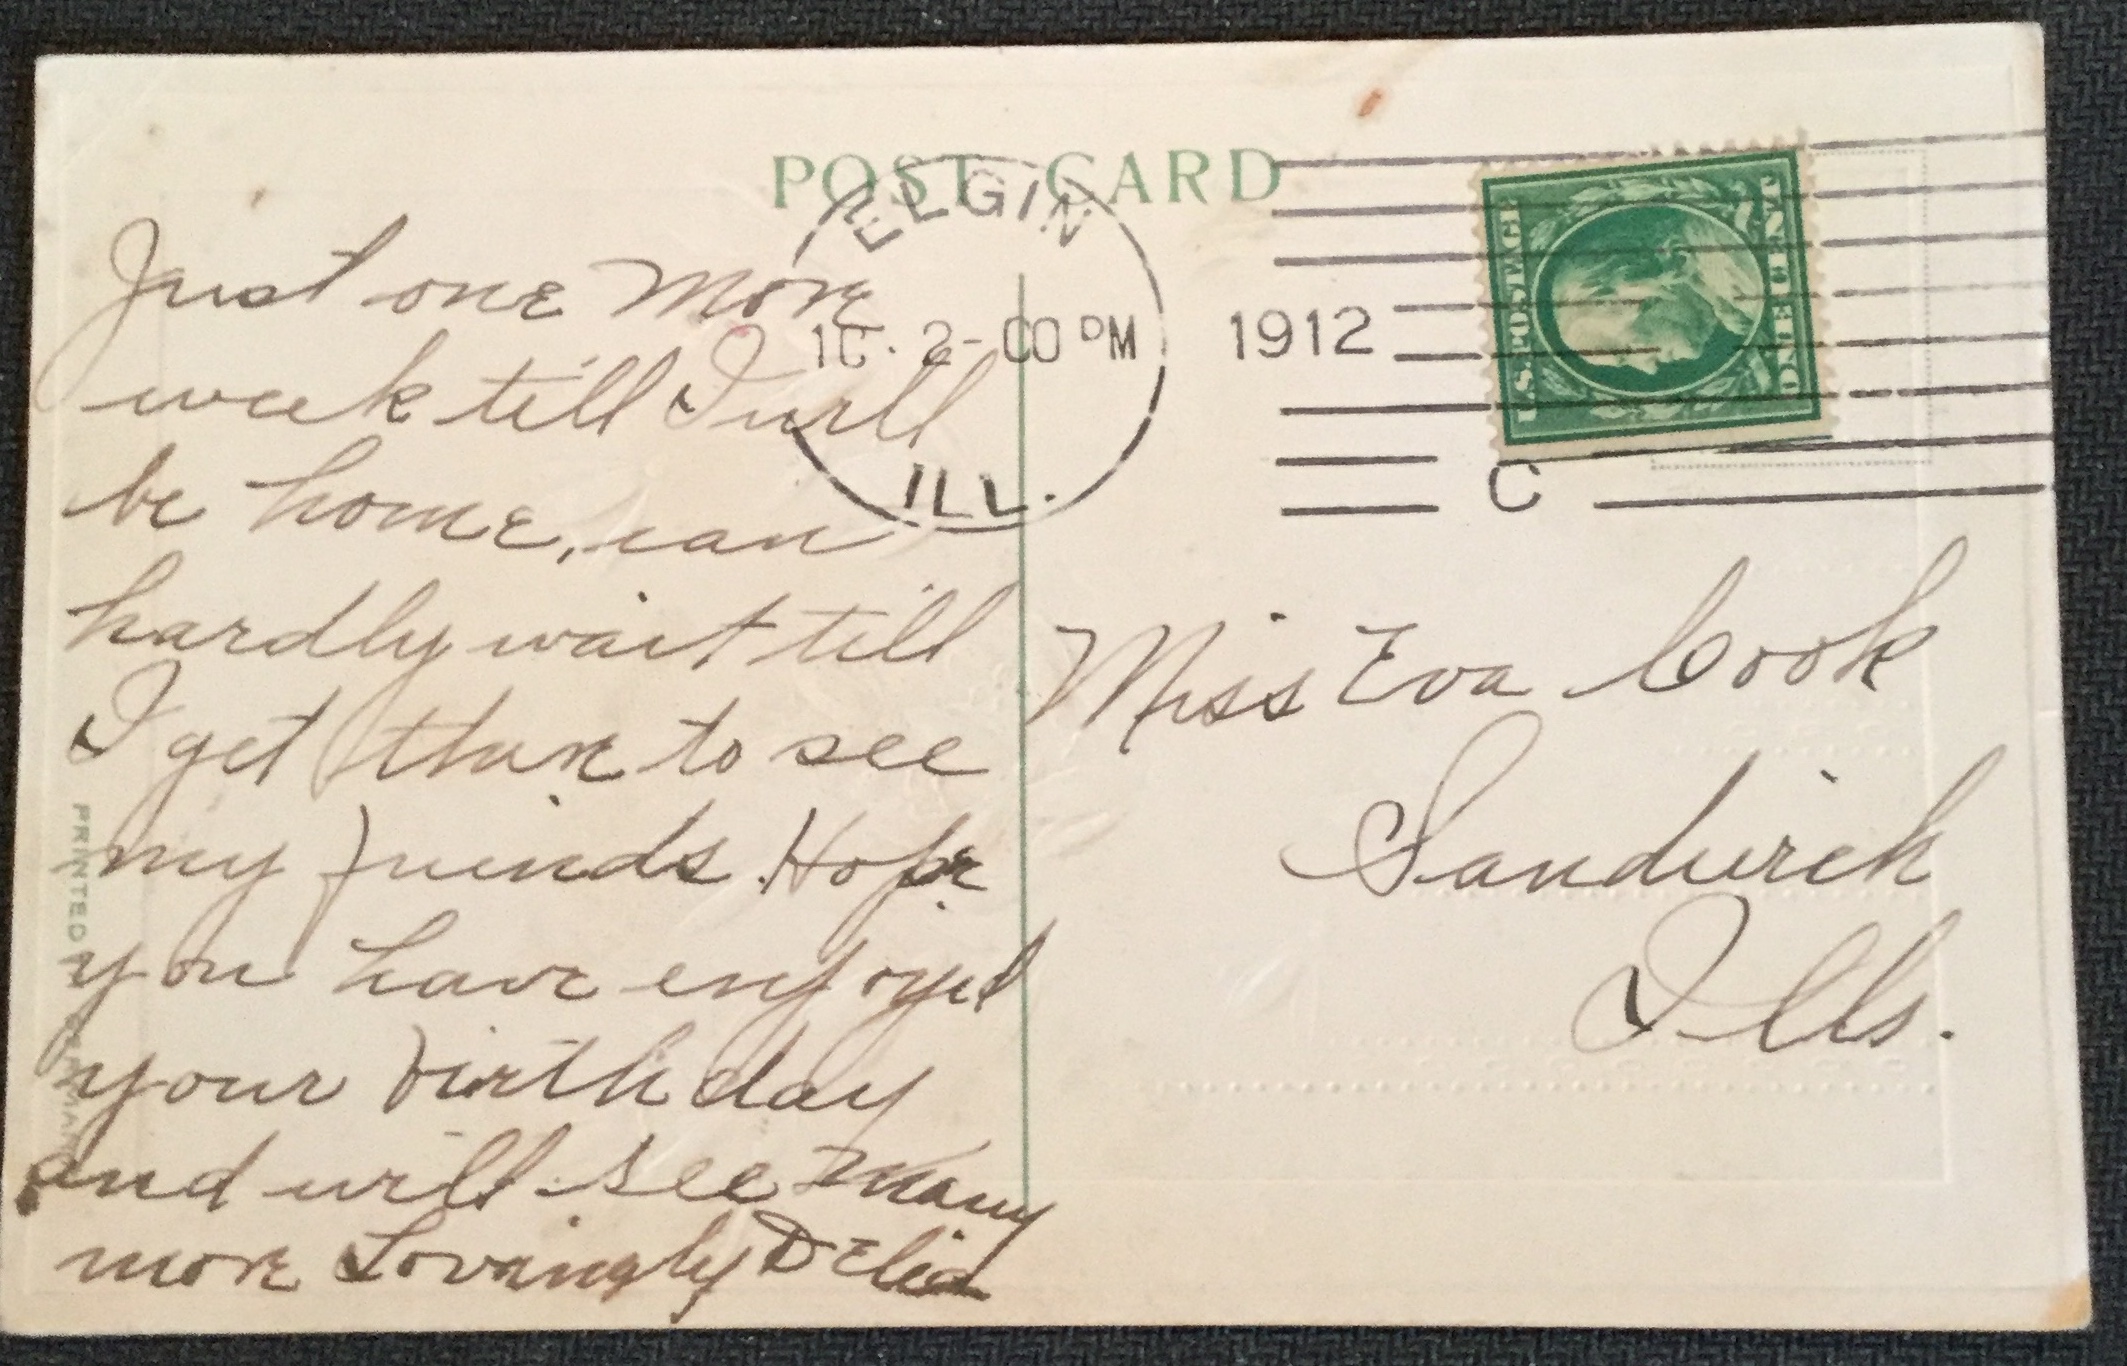 POST CARD
ELGIN
2-00 PM
1912
ILL.
C
U.S. POSTAGE
ONE CENT
Just one more
week till I will
be home, can
hardly wait till
I get there to see
my friends. Hope
you have enjoyed
your birthday
and will see many
more Lovingly Delia
Miss Eva Cook
Sandwich
Ills.
PRINTED IN GERMANY